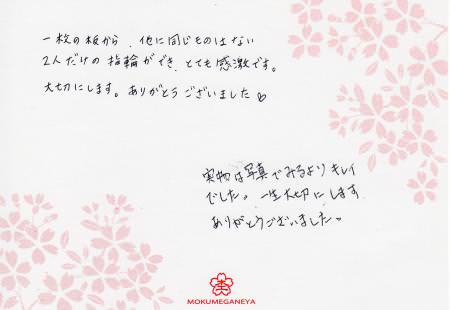 一枚の板から、他に同じものはない
2人だけの指輪ができ、とても感激です。
大切にします。ありがとうございました♡
実物は写真でみるよりキレイ
でした。一生大切にします
ありがとうございました。
MOKUMEGANEYA